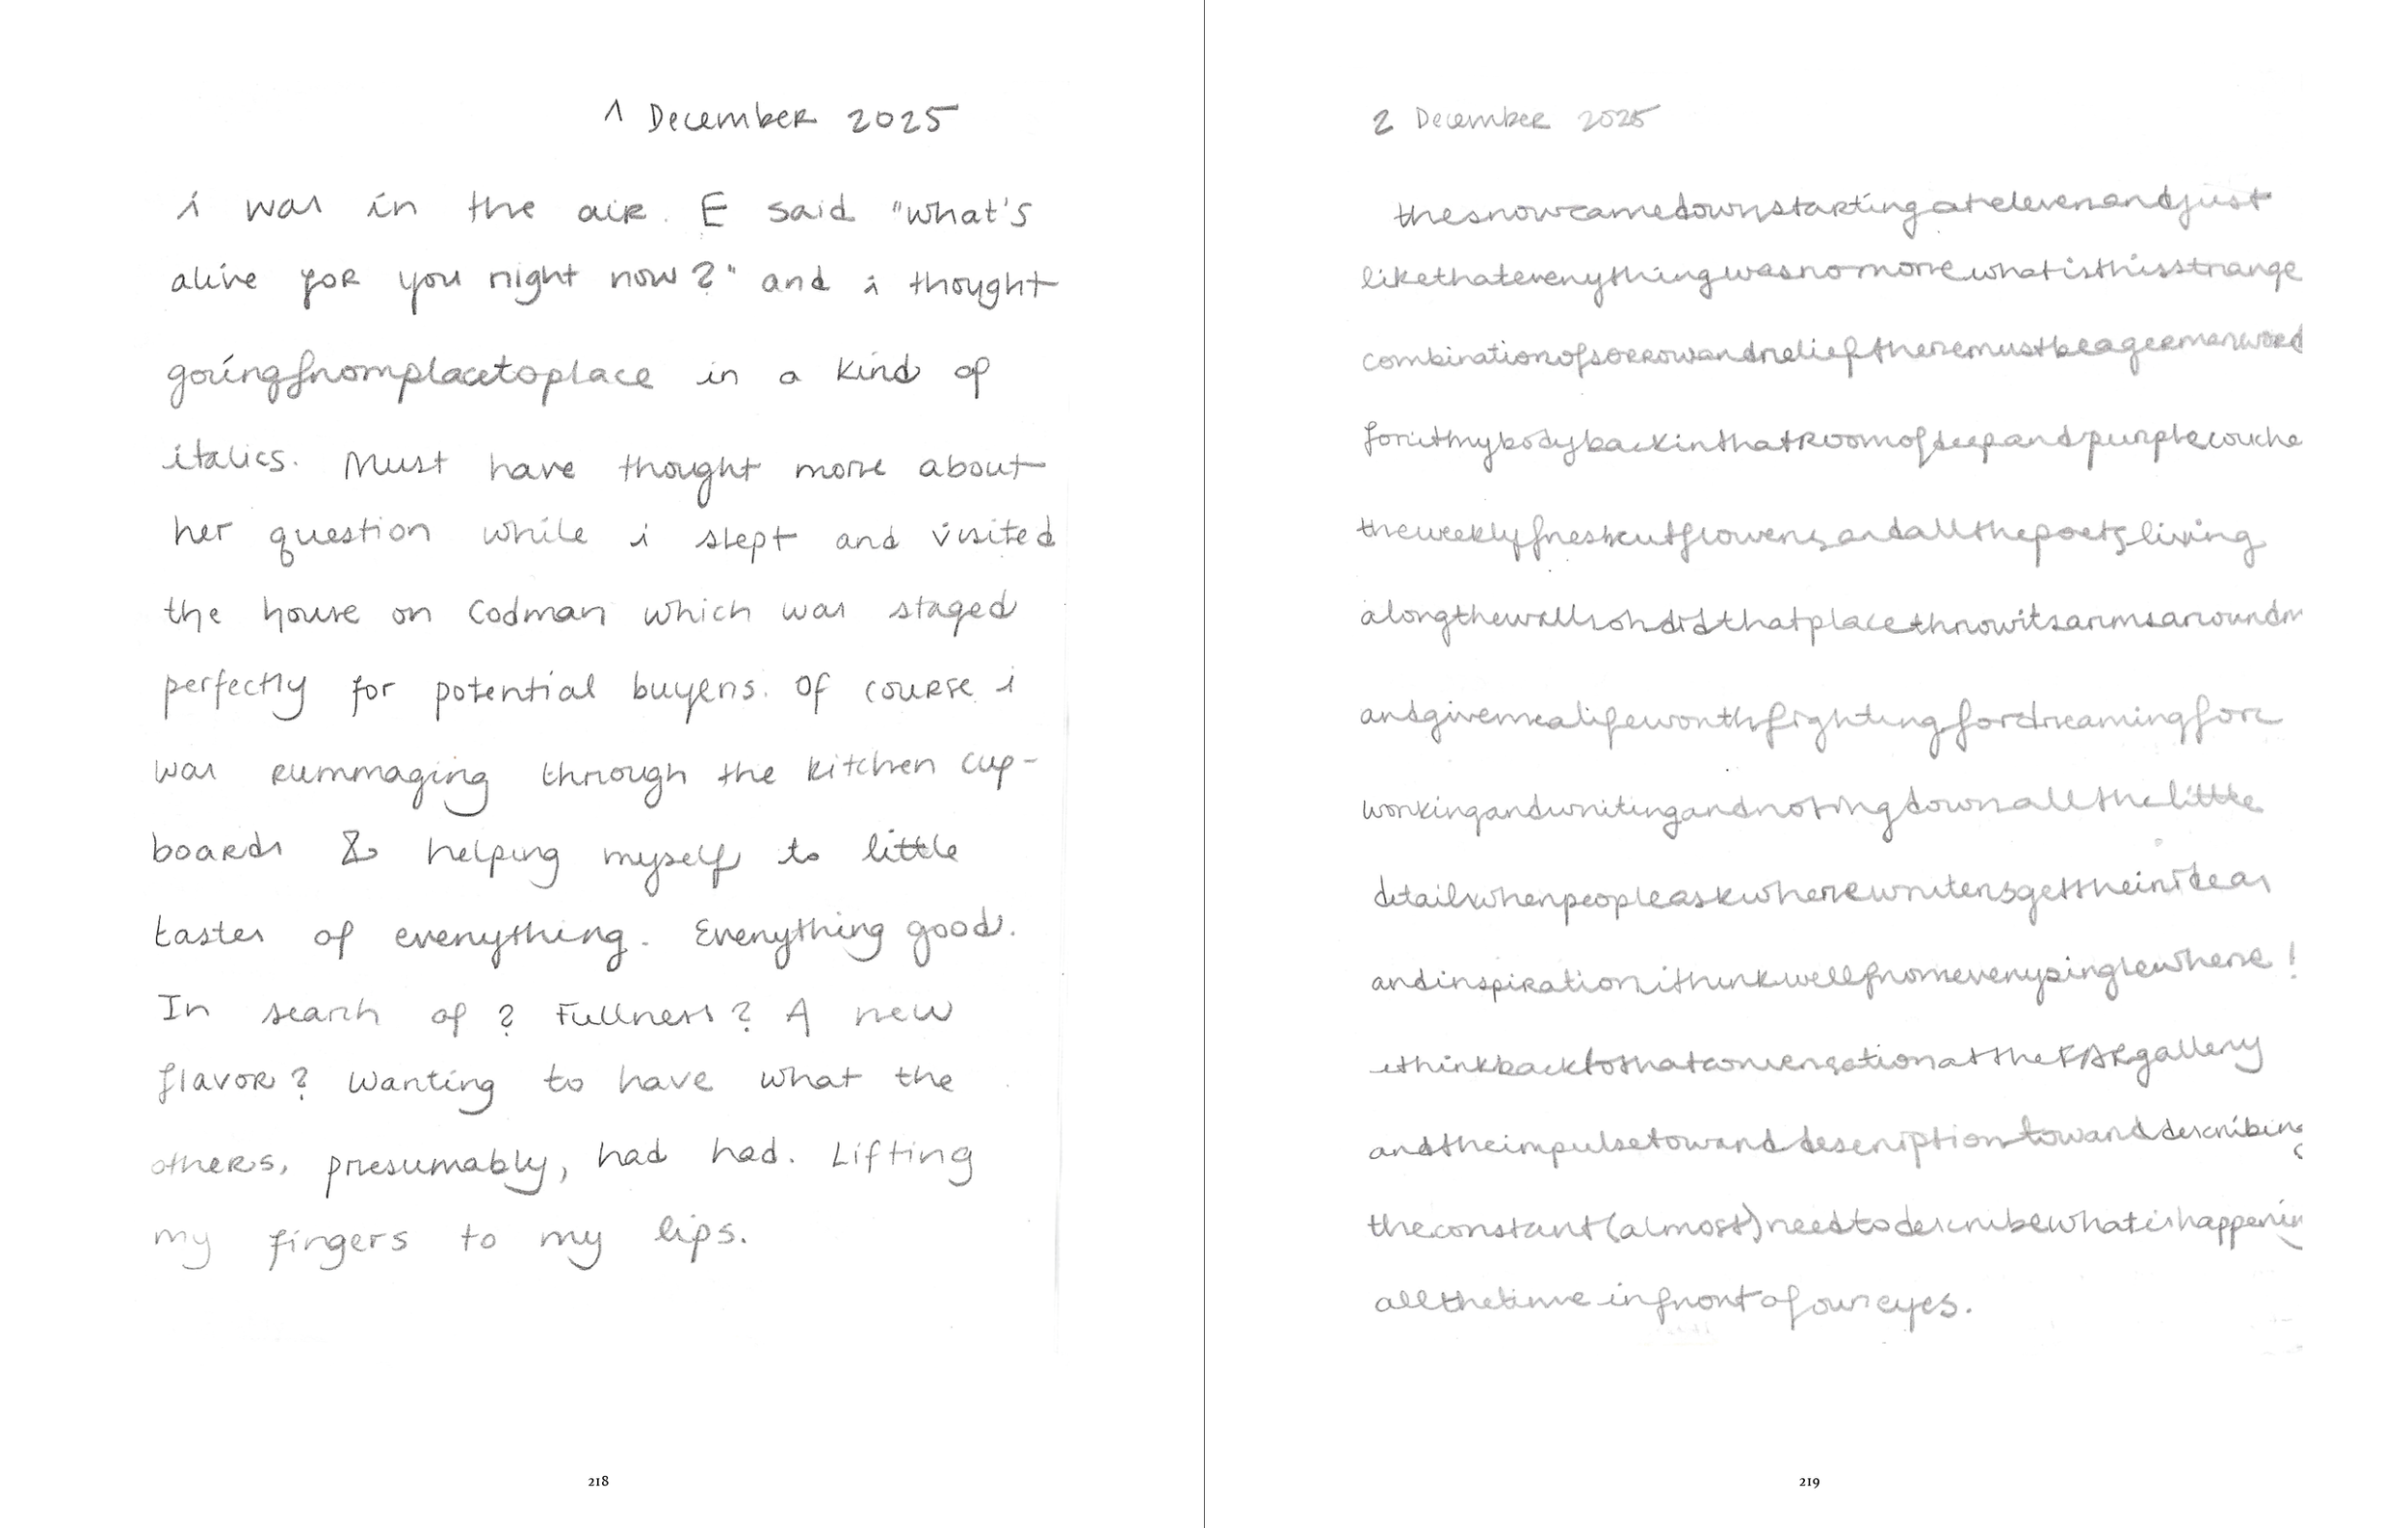 1 December 2025
i was in the air. E said "what's
alive for you right now?" and i thought
goingfromplacetoplace in a kind of
italics. Must have thought more about
her question while i slept and visited
the house on Codman which was staged
perfectly for potential buyers. Of course i
was rummaging through the kitchen cup-
boards & helping myself to little
tastes of everything. Everything good.
In search of? Fullness? A new
flavor? Wanting to have what the
others, presumably, had had. Lifting
my fingers to my lips.
218
2 December 2025
thesnowcamedownstartingatelevenandjust
likethateverythingwasnomorewhatisthisstrange
combinationofsorrowandrelieftheremustbeagermanword
foritmybodybackinthatroomofdeepandpurplecouche
theweeklyfreshcutflowersandallthepoetsliving
alongthewallsohdidthatplacethrowitsarmsaroundm
andgivemealifeworthfightingfordreamingfor
workingandwritingandnotingdownallthelittle
detailswhenpeopleaskwherewritersgettheirideas
andinspirationithinkwellfromeverysinglewhere!
ithinkbacktothatconversationattheFARgallery
andtheimpulsetowarddescription towarddescribing
theconstant(almost)needtodescribewhatishappenin
allthetime infrontofoureyes.
219